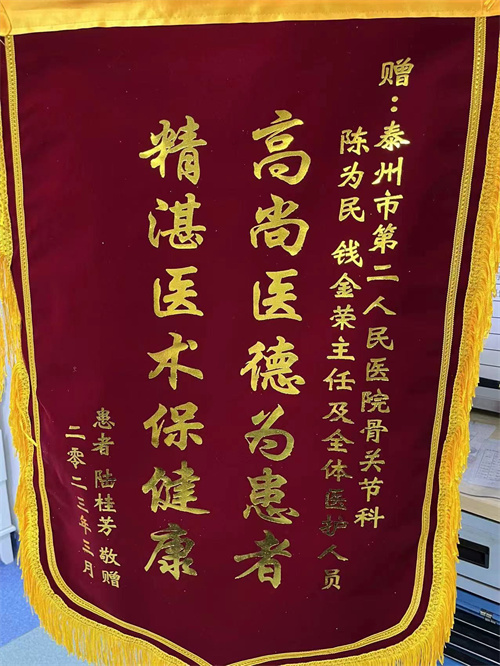 赠：泰州市第二人民医院骨关节科
陈为民 钱金荣主任及全体医护人员
高尚医德为患者
精湛医术保健康
患者 陆桂芳 敬赠
二零二三年三月